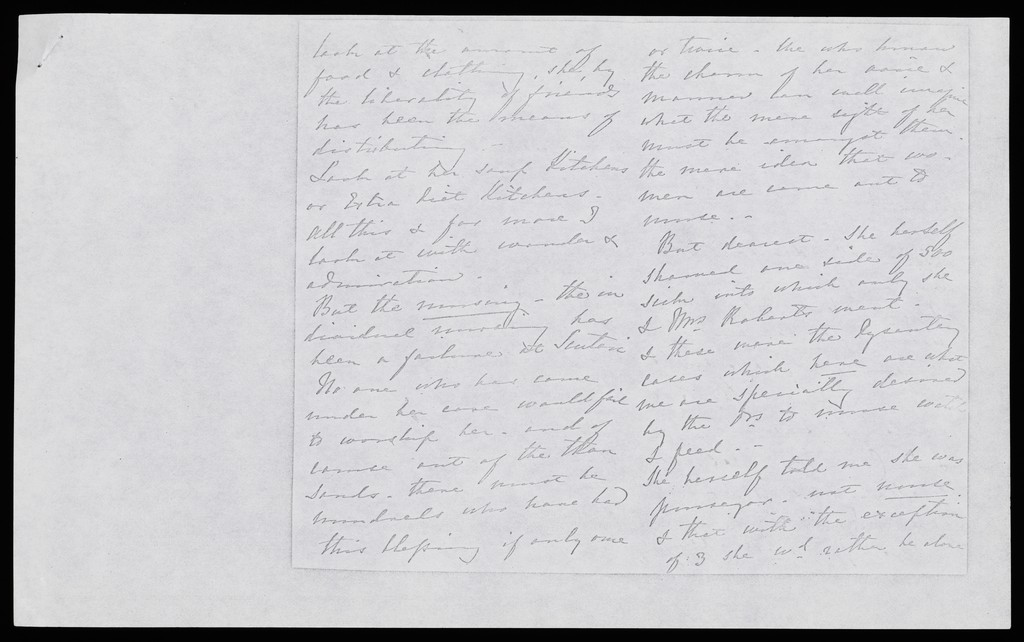 look at the amount of
food & clothing, she, by
the liberality of friends
has been the means of
distributing. -
Look at her soup Kitchens
or Extra Diet Kitchens.
All this & far more I
look at with wonder &
admiration -
But the nursing - the in
dividual nursing has
been a failure at Scutari
No one who has come
under her care would fail
to worship her - and of
course out of the thou
sands - there must be
hundreds who have had
this blessing if only once
or twice - We who know
the charm of her voice &
manner can well imagine
what the mere sight of her
must be amongst them.
the mere idea that wo-
men are come out to
nurse. -
But dearest - She herself
showed one side of 500
sick into which only she
& Mrs Roberts went.
& these were the Dysentery
cases which here are what
we are specially desired
by the Drs to nurse well
& feed. -
She herself told me she was
purveyor - not nurse
& that with "the exception
of 3 she wd rather be alone